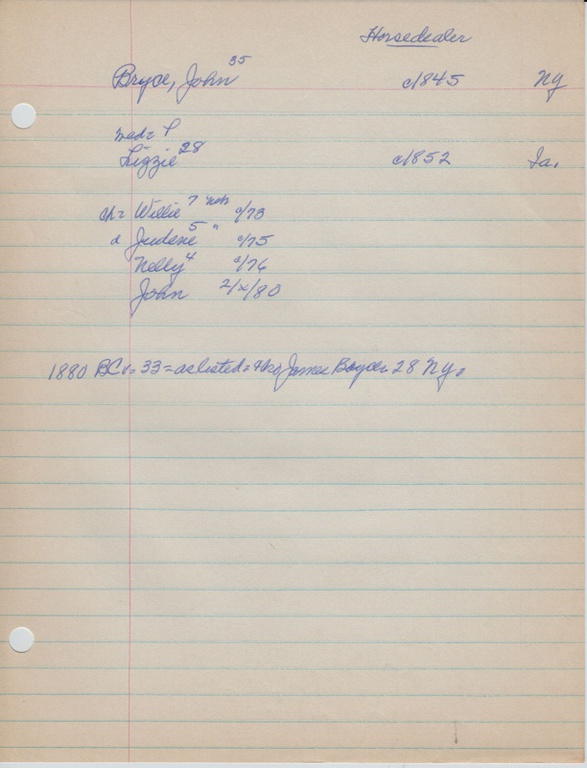 Horsedealer
Bryce, John 35 c1845 Ny
wed = ?
Lizzie 28 c1852 Ia.
ch = Willie 7 c/73
d Judene 5 " c/75
Nelly 4 c/76
John 2/x/80
1880 BC 33 = as listed = James Boyce 28 Ny.